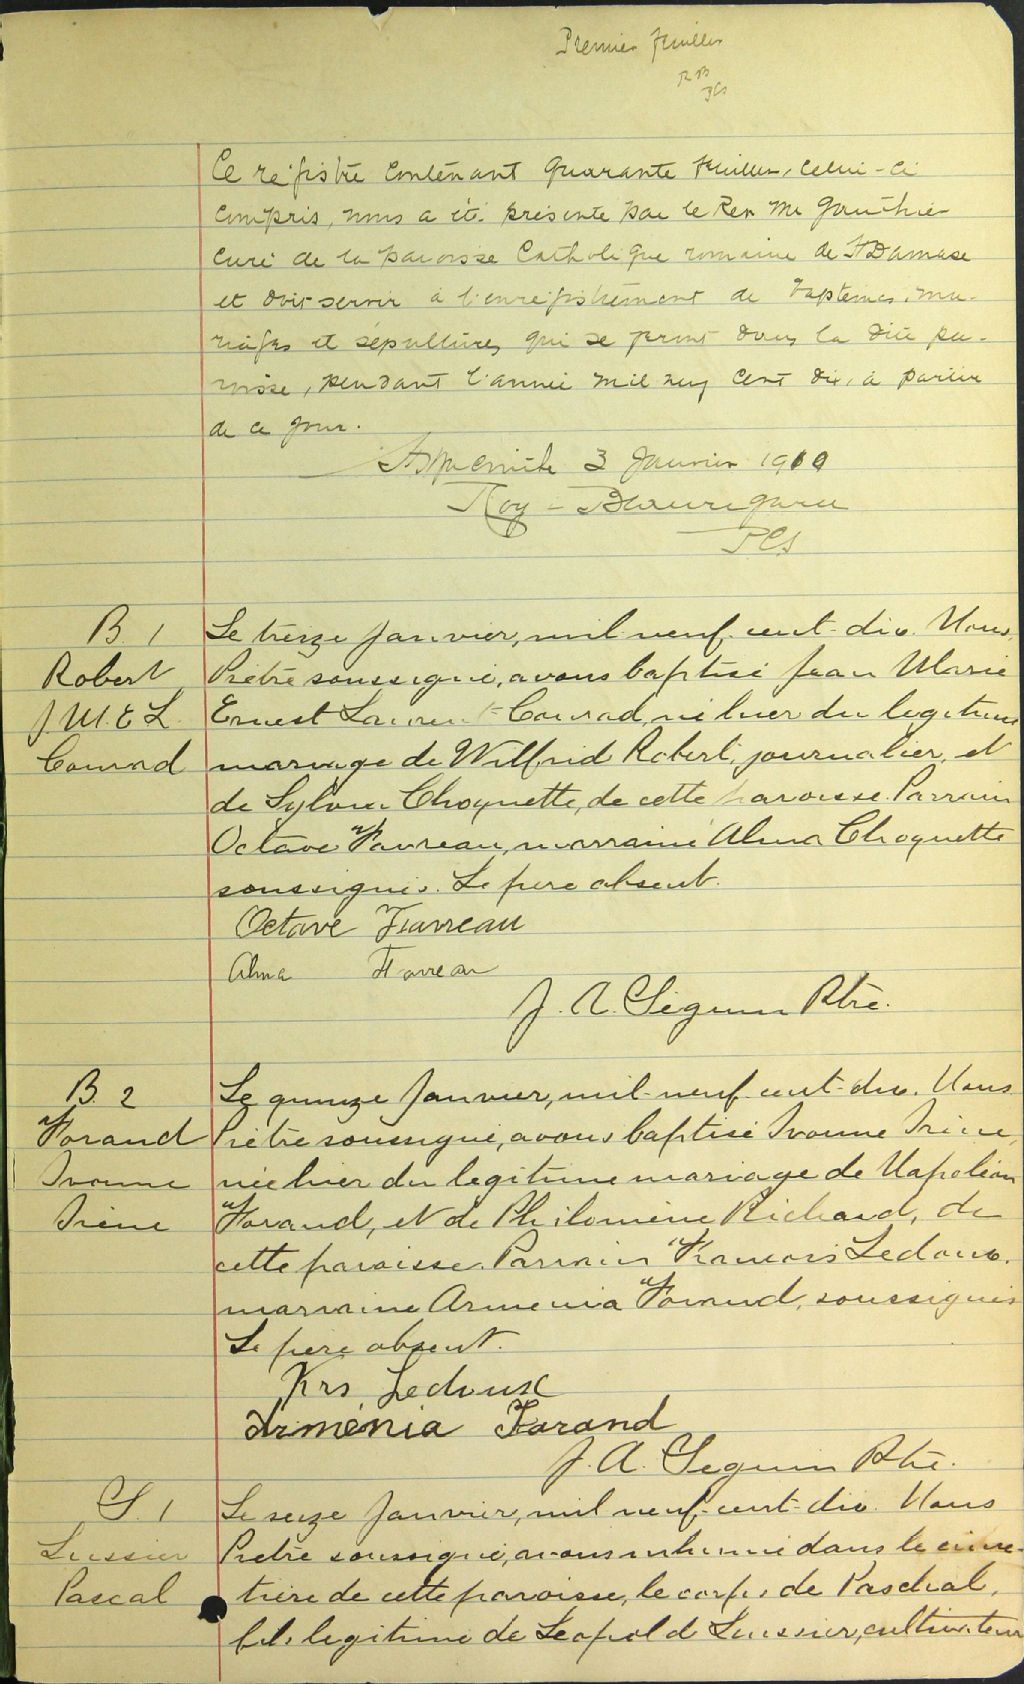 Premier feuillet
R B
PCS
Ce régistre contenant quarante feuillets, celui-ci
compris, nous a été présenté par le Rev Mr Gauthier
curé de la paroisse Catholique romaine de St Damase
et doit servir à l'enregistrement de baptêmes, ma-
riages et sépultures qui se feront dans la dite pa-
roisse, pendant l'année mil neuf cent dix, à partir
de ce jour.
St Hyacinthe 3 Janvier 1910
Roy - Beauregard
PCS
B. 1
Robert
J M. E L.
Conrad
Le treize Janvier, mil-neuf-cent-dix. Nous,
Prêtre soussigné, avons baptisé Jean Marie
Ernest Laurent-Conrad, né hier du légitime
mariage de Wilfrid Robert, journalier, et
de Sylvia Choquette, de cette paroisse. Parrain
Octave Favreau, marraine Alma Choquette
soussignés. Le père absent.
Octave Favreau
Alma Favreau
J. A. Séguin Ptre.
B. 2
Forand
Ivonne
Irène
Le quinze Janvier, mil-neuf-cent-dix. Nous
Prêtre soussigné, avons baptisé Ivonne Irène,
née hier du legitime mariage de Napoléon
Forand, et de Philomène Richard, de
cette paroisse. Parrain François Ledoux.
marraine Armenia Forand, soussignés
Le père absent.
Frs Ledoux
Arménia Forand
J. A. Seguin Ptre.
S. 1
Lussier
Pascal
Le seize Janvier, mil neuf-cent-dix. Nous
Prêtre soussigné, avons inhumé dans le cime-
tière de cette paroisse, le corps de Paschal,
fils legitime de Léopold Lussier, cultivateur